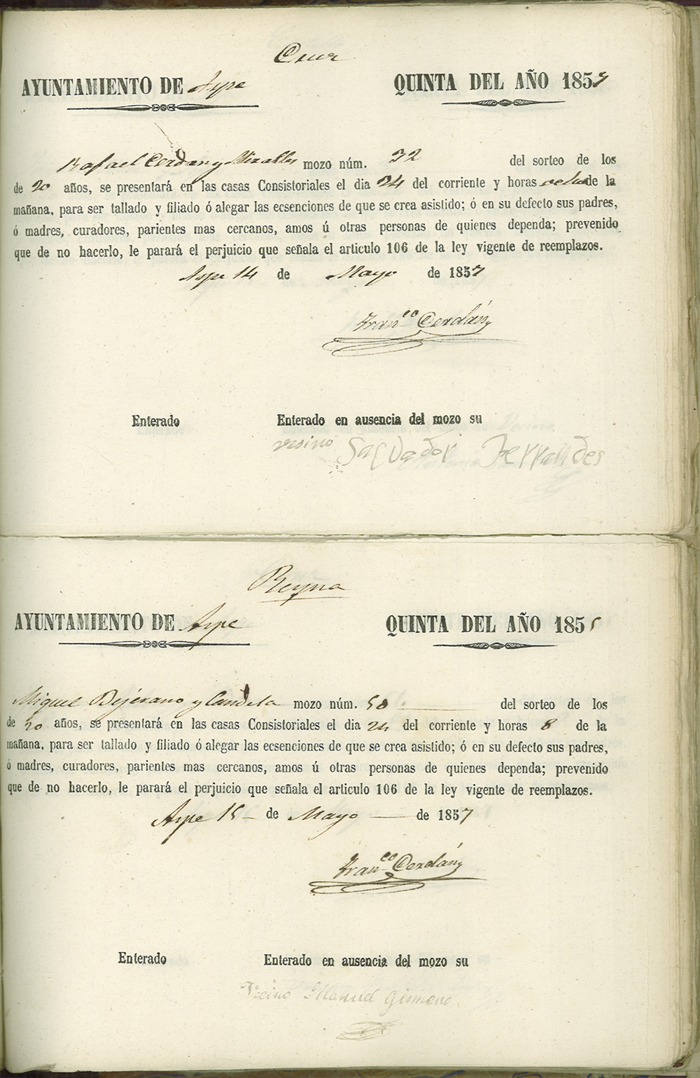 Cruz
AYUNTAMIENTO DE Aspe QUINTA DEL AÑO 1857
Rafael Cerdan y Miralles mozo núm. 32 del sorteo de los
de 20 años, se presentará en las casas Consistoriales el dia 24 del corriente y horas ocho de la
mañana, para ser tallado y filiado ó alegar las ecsenciones de que se crea asistido; ó en su defecto sus padres,
ó madres, curadores, parientes mas cercanos, amos ú otras personas de quienes dependa; prevenido
que de no hacerlo, le parará el perjuicio que señala el articulo 106 de la ley vigente de reemplazos.
Aspe 14 de Mayo de 1857
Franco Cerdán
Enterado Enterado en ausencia del mozo su
vesino Salvador Ferrandes
Reyna
AYUNTAMIENTO DE Aspe QUINTA DEL AÑO 185
Miguel Bejerano y Candela mozo núm. 50 del sorteo de los
de 20 años, se presentará en las casas Consistoriales el dia 24 del corriente y horas 8 de la
mañana, para ser tallado y filiado ó alegar las ecsenciones de que se crea asistido; ó en su defecto sus padres,
ó madres, curadores, parientes mas cercanos, amos ú otras personas de quienes dependa; prevenido
que de no hacerlo, le parará el perjuicio que señala el articulo 106 de la ley vigente de reemplazos.
Aspe 15 de Mayo de 1857
Franco Cerdán
Enterado Enterado en ausencia del mozo su
Vecino Manuel Gimeno